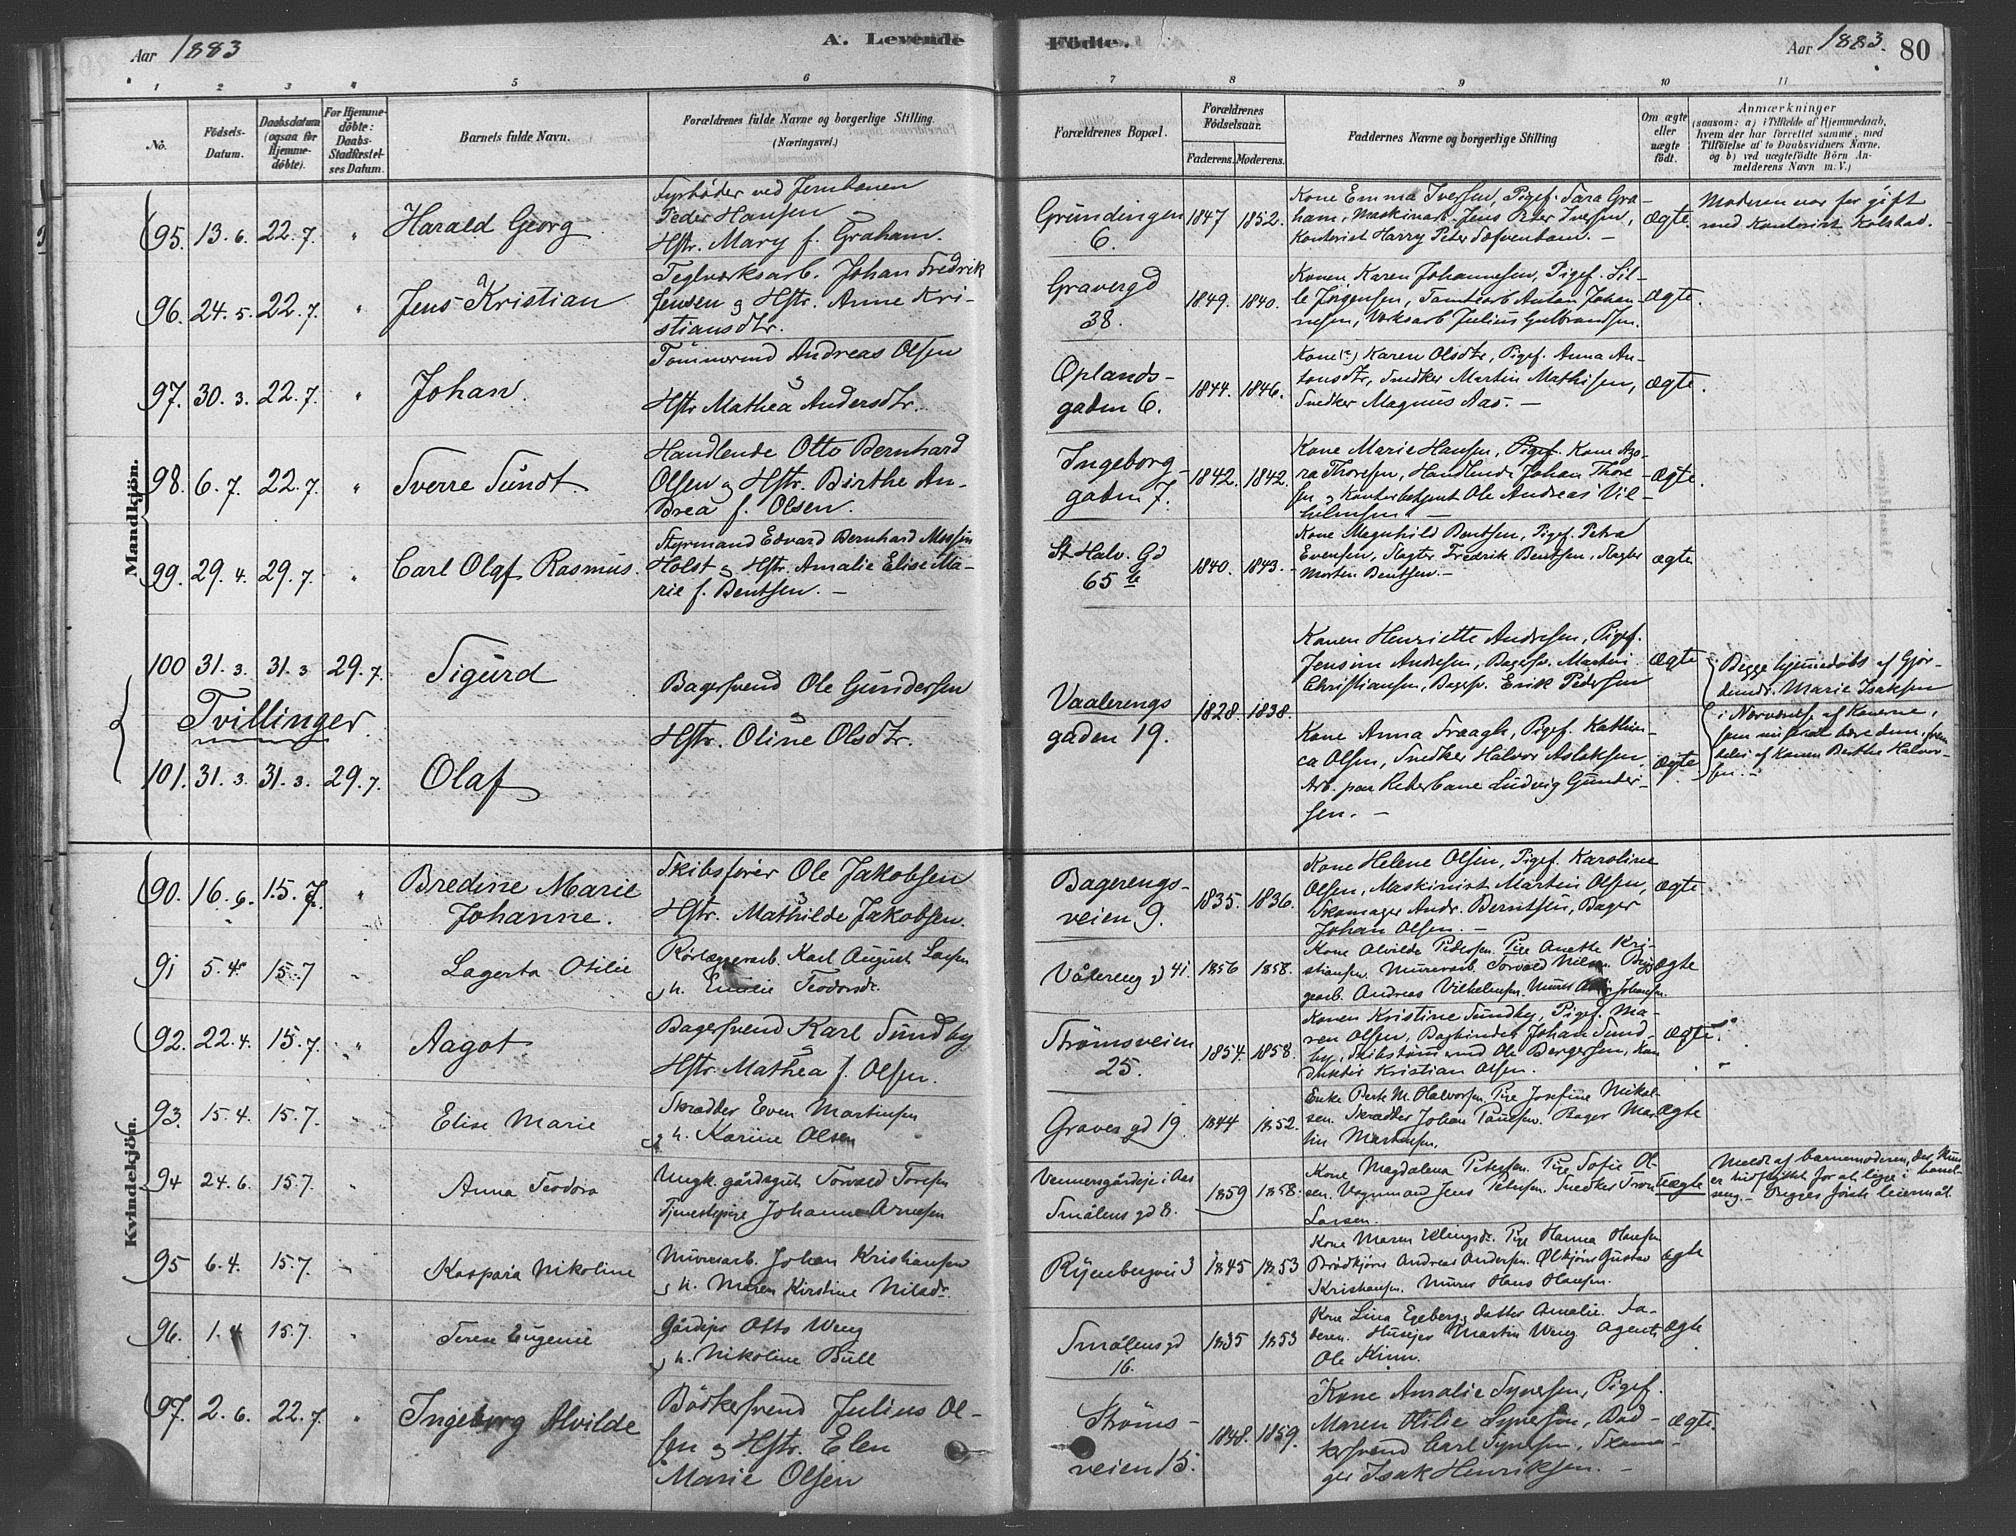 Aar 1883
A. Levende
Födte.
Aar 1883.
80
1 2 3 4 5 6 7 8 9 10 11
No.
Födsels-Datum.
Daabsdatum (ogsaa for Hjemmedöbte).
For Hjemmedöbte: Daabs-Stadfæstelses Datum.
Barnets fulde Navn.
Forældrenes fulde Navne og borgerlige Stilling.
(Næringsvei.)
Forældrenes Bopæl.
Forældrenes Födselsaar.
Faderens. Moderens.
Faddernes Navne og borgerlige Stilling
Om ægte eller uægte födt.
Anmærkninger
(saasom: a) i Tilfælde af Hjemmedaab, hvem der har forrettet samme, med Tilföielse af to Daabsvidners Navne. og b) ved uægtefödte Börn Anmelderens Navn m. V.)
Mandkjön.
95. 13. 6. 22. 7. " Harald Georg
Fyrböder ved Jernbanen
Peder Hansen
Hstr. Mary f. Graham.
Gründingen
6.
1847 1852.
Kone Emma Iversen, Pigef. Sara Gra-
ham, Maskinarb. Jens Peter Iversen,
Kontorist Harry Peter
ægte.
Moderen var før gift
med Kontorist Kolstad.
96. 24. 5. 22. 7. " Jens Kristian
Teglværksarb. Johan Fredrik
Jensen og Hstr. Anne Kri-
stiansdtr.
Gravergd
38.
1849. 1840.
Konen Karen Johannesen, Pigef. Sil-
le Jörgensen, Tomtearb Anton Johan-
nesen, Værksarb Julius Gulbrandsen.
ægte.
97. 30. 3. 22. 7. " Johan.
Tömmermd Andreas Olsen
og
Hstr Mathea Andersdtr.
Oplands-
gaden 6.
1844. 1846.
Kone Karen Olsdtr, Pigef. Anna An-
tonsdtr, Snedker Martin Mathisen,
Snedker Magnus Aas. -
ægte.
98. 6. 7. 22. 7. " Sverre Sundt
Handlende Otto Bernhard
Olsen og Hstr. Birthe An-
drea f. Olsen.
Ingeborg-
gaden 7.
1842. 1842.
Kone Marie Hansen, Pigef. Kone
ra Thoresen, Handlende Johan Thore-
sen, Kontorbetjent Ole Andreas Vil-
helmsen -
ægte.
99. 29. 4. 29. 7. " Carl Olaf Rasmus.
Styrmand Edvard Bernhard
Holst og Hstr. Amalie Elise Ma-
rie f. Bentsen. -
St. Halv. Gd
65 b
1840. 1843.
Kone Magnhild Bentsen, Pigef. Petra
Evensen, Slagter Fredrik Bentsen, Slagter
Morten Bentsen. -
ægte
100 31. 3. 31. 3 29. 7. Sigurd
Tvillinger.
Bagersvend Ole Gundersen
og
Hstr. Oline Olsdtr.
Vaalerengs
gaden 19.
1828. 1838.
Konen Henriette Andresen, Pigef.
Jensine Andresen, Bagersv. Martin
Christiansen, Bagersv. Erik Pedersen
ægte
Begge hjemmedöbt af Gjor-
demdr. Marie Isaksen
i Nærværelse af Konerne,
af Konen Berthe Halvor-
sen. -
101. 31. 3. 31. 3. 29. 7. Olaf
Kone Anna Kraagh, Pigef. Kathin-
ca Olsen, Snedker Halvor Aslaksen,
Arb. paa Reberbane Ludvig Gunder-
sen. -
ægte
Kvindekjön.
90. 16. 6. 15. 7. " Bredine Marie
Johanne.
Skibsförer Ole Jakobsen
og
Hstr. Mathilde Jakobsen.
Bagerengs-
veien 9.
1835. 1836.
Kone Helene Olsen, Pigef. Karoline
Olsen, Maskinist Martin Olsen,
Skomager Andr. Berntsen, Bager
Johan Olsen. -
ægte
91 5. 4. 15. 7 " Lagerta Otilie
Rörlæggerarb. Karl August Larsen
og h. Emilie Teodorsdr.
Vålereng gd 41.
1856 1858.
Kone Alvilde Pedersen. Pige Anette Kri-
stiansen. Murerarb. Torvald Nilsen.
Andreas Vilhelmsen. Murer Johansen.
ægte
92. 22. 4. 15. 7. " Aagot
Bagersvend Karl Sundby
og
Hstr. Mathea f. Olsen.
Strömsveien
25.
1854. 1858.
Konen Kristine Sundby, Pigef. Ma-
ren Olsen, Bogbinder Johan Sund-
by, Skibstömmermd Ole Bergersen, Kon-
duktör Kristian Olsen.
ægte.
93. 15. 4. 15. 7. " Elise Marie
Skrædder Even Martinsen
og h. Karine Olsen
Graver gd 19.
1844 1852.
Enke Berte M. Halvorsen. Pige Josefine Nikol-
sen. Skrædder Johan Paulsen. Bager Mar-
tin Martinsen.
ægte
94 24. 6. 15. 7. " Anna Teodora
Ungk. gårdsgut Torvald Toresen
Tjenestepige Johanne Arnesen
i Aas
Smålens gd 8.
1859 1858.
Kone Magdalena Petersen. Pige Sofie Ol-
sen. Vognmand Jens Petersen. Snedker
Larsen.
uægte
Meldt af barnemoderen, der
er indflyttet for at ligge i barsel-
seng. - Begges förste leiermål.
95 6. 4. 15. 7. " Kaspara Nikoline
Murerarb. Johan Kristiansen
og h. Maren Kirstine Nilsdr.
Ryenbergvei 3
1845 1853
Kone Maren Ellingsdr. Pige Hanna Hansen
Brödkjörer Andreas Andersen. Ölkjörer Gustav
Kristiansen. Murer Hans Hansen.
ægte
96. 1. 4 15. 7. " Terese Eugenie
Gårdejer Otto Weng
og h. Nikoline Bull
Smålens gd
16.
1835 1853
Kone Lina Egeberg, datter Amalie. Fa-
deren. Husejer Martin Weng. Agent
Ole Kinn.
ægte
97. 2. 6. 22. 7. " Ingeborg Alvilde
Bödkersvend Julius Ol-
sen og Hstr. Elen
Marie Olsen
Ströms-
veien 15.
1848. 1859.
Kone Amalie Syversen, Pigef.
Maren Otilie Syversen, Böd-
kersvend Carl Syversen, Skoma-
ger Isak Henriksen. -
ægte.